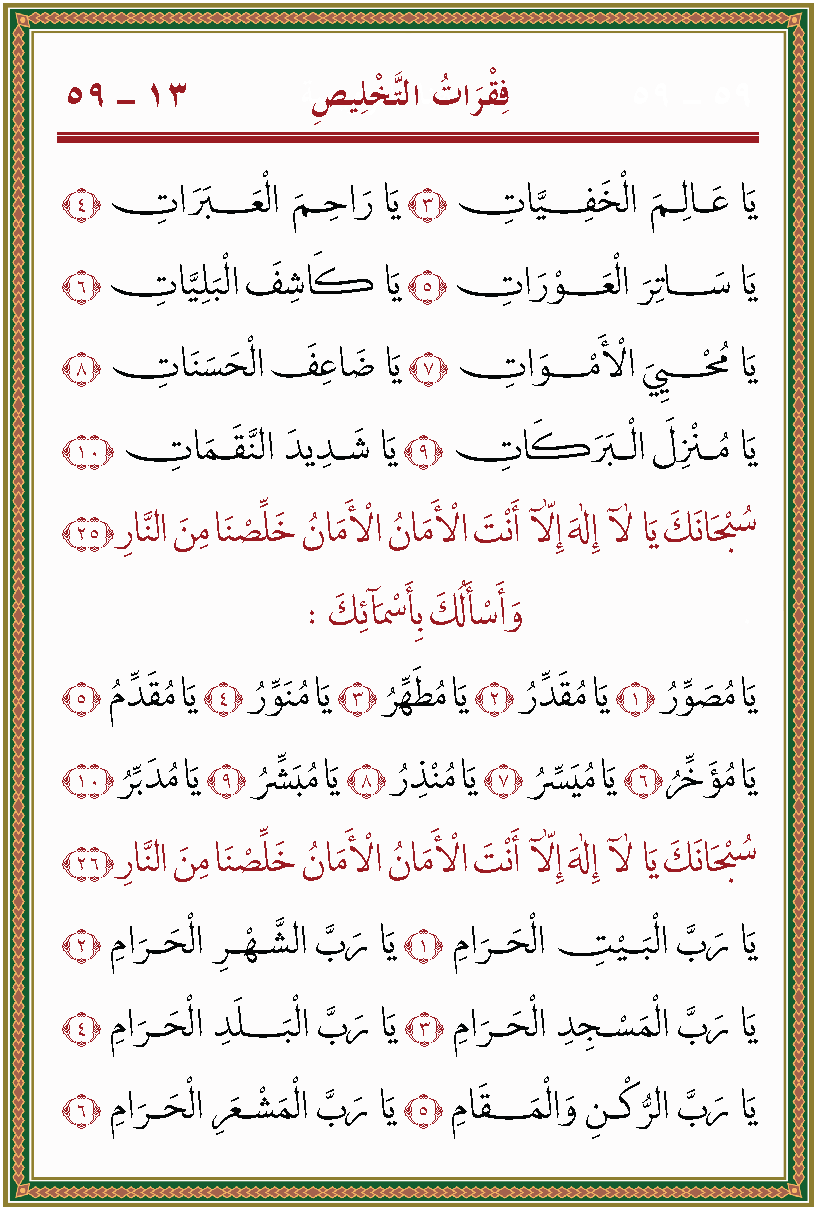 فِقْرَاتُ التَّخْلِيصِ ١٣ ـ ٥٩
يَا عَالِمَ الْخَفِيَّاتِ ﴿٣﴾ يَا رَاحِمَ الْعَبَرَاتِ ﴿٤﴾
يَا سَاتِرَ الْعَوْرَاتِ ﴿٥﴾ يَا كَاشِفَ الْبَلِيَّاتِ ﴿٦﴾
يَا مُحْيِيَ الْأَمْوَاتِ ﴿٧﴾ يَا ضَاعِفَ الْحَسَنَاتِ ﴿٨﴾
يَا مُنْزِلَ الْبَرَكَاتِ ﴿٩﴾ يَا شَدِيدَ النَّقَمَاتِ ﴿١٠﴾
سُبْحَانَكَ يَا لَآ إِلٰهَ إِلَّآ أَنْتَ الْأَمَانُ الْأَمَانُ خَلِّصْنَا مِنَ النَّارِ ﴿٢٥﴾
وَأَسْأَلُكَ بِأَسْمَآئِكَ :
يَا مُصَوِّرُ ﴿١﴾ يَا مُقَدِّرُ ﴿٢﴾ يَا مُطَهِّرُ ﴿٣﴾ يَا مُنَوِّرُ ﴿٤﴾ يَا مُقَدِّمُ ﴿٥﴾
يَا مُؤَخِّرُ ﴿٦﴾ يَا مُيَسِّرُ ﴿٧﴾ يَا مُنْذِرُ ﴿٨﴾ يَا مُبَشِّرُ ﴿٩﴾ يَا مُدَبِّرُ ﴿١٠﴾
سُبْحَانَكَ يَا لَآ إِلٰهَ إِلَّآ أَنْتَ الْأَمَانُ الْأَمَانُ خَلِّصْنَا مِنَ النَّارِ ﴿٢٦﴾
يَا رَبَّ الْبَيْتِ الْحَرَامِ ﴿١﴾ يَا رَبَّ الشَّهْرِ الْحَرَامِ ﴿٢﴾
يَا رَبَّ الْمَسْجِدِ الْحَرَامِ ﴿٣﴾ يَا رَبَّ الْبَلَدِ الْحَرَامِ ﴿٤﴾
يَا رَبَّ الرُّكْنِ وَالْمَقَامِ ﴿٥﴾ يَا رَبَّ الْمَشْعَرِ الْحَرَامِ ﴿٦﴾